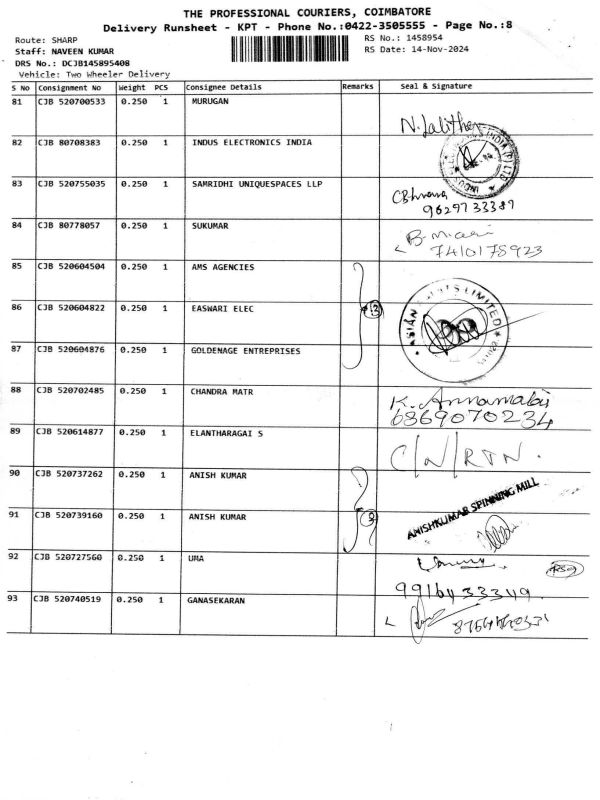 THE PROFESSIONAL COURIERS, COIMBATORE
Delivery Runsheet - KPT - Phone No.:0422-3505555 - Page No.:8
Route: SHARP
RS No.: 1458954
Staff: NAVEEN KUMAR
RS Date: 14-Nov-2024
DRS No.: DCJB145895408
Vehicle: Two Wheeler Delivery
S No Consignment No Weight PCS Consignee Details Remarks Seal & Signature
81 CJB 520700533 0.250 1 MURUGAN
82 CJB 80708383 0.250 1 INDUS ELECTRONICS INDIA
83 CJB 520755035 0.250 1 SAMRIDHI UNIQUESPACES LLP
9629733389
84 CJB 80778057 0.250 1 SUKUMAR
7410178923
85 CJB 520604504 0.250 1 AMS AGENCIES
86 CJB 520604822 0.250 1 EASWARI ELEC
ASIAN PAINTS LIMITED
87 CJB 520604876 0.250 1 GOLDENAGE ENTREPRISES
88 CJB 520702485 0.250 1 CHANDRA MATR
K. Annamalai
6369070234
89 CJB 520614877 0.250 1 ELANTHARAGAI S
C/N/RTN.
90 CJB 520737262 0.250 1 ANISH KUMAR
ANISHKUMAR SPINNING MILL
91 CJB 520739160 0.250 1 ANISH KUMAR
92 CJB 520727560 0.250 1 UMA
93 CJB 520740519 0.250 1 GANASEKARAN